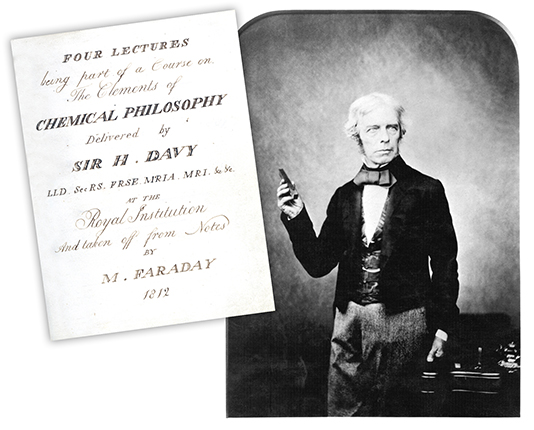 FOUR LECTURES
being part of a Course on
The Elements of
CHEMICAL PHILOSOPHY
Delivered by
SIR H. DAVY
LLD. SecRS. FRSE. MRIA. MRI. &c &c.
AT THE
Royal Institution
And taken off from Notes
BY
M. FARADAY
1812